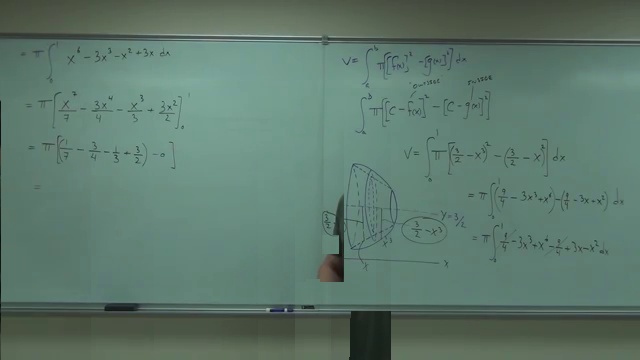 = π ∫₀¹ x⁶ - 3x³ - x² + 3x dx
= π [x⁷/7 - 3x⁴/4 - x³/3 + 3x²/2]₀¹
= π [(1/7 - 3/4 - 1/3 + 3/2) - 0]
=
V = ∫ₐᵇ π[[f(x)]² - [g(x)]²] dx
∫ₐᵇ π[[C - f(x)]² - [C - g(x)]²]
V = ∫₀¹ π[(3/2 - x³)² - (3/2 - x)²] dx
= π ∫₀¹ (9/4 - 3x³ + x⁶) - (9/4 - 3x + x²) dx
= π ∫₀¹ 9/4 - 3x³ + x⁶ - 9/4 + 3x - x² dx
y = 3/2
3/2
3/2 - x³
x³
x
x